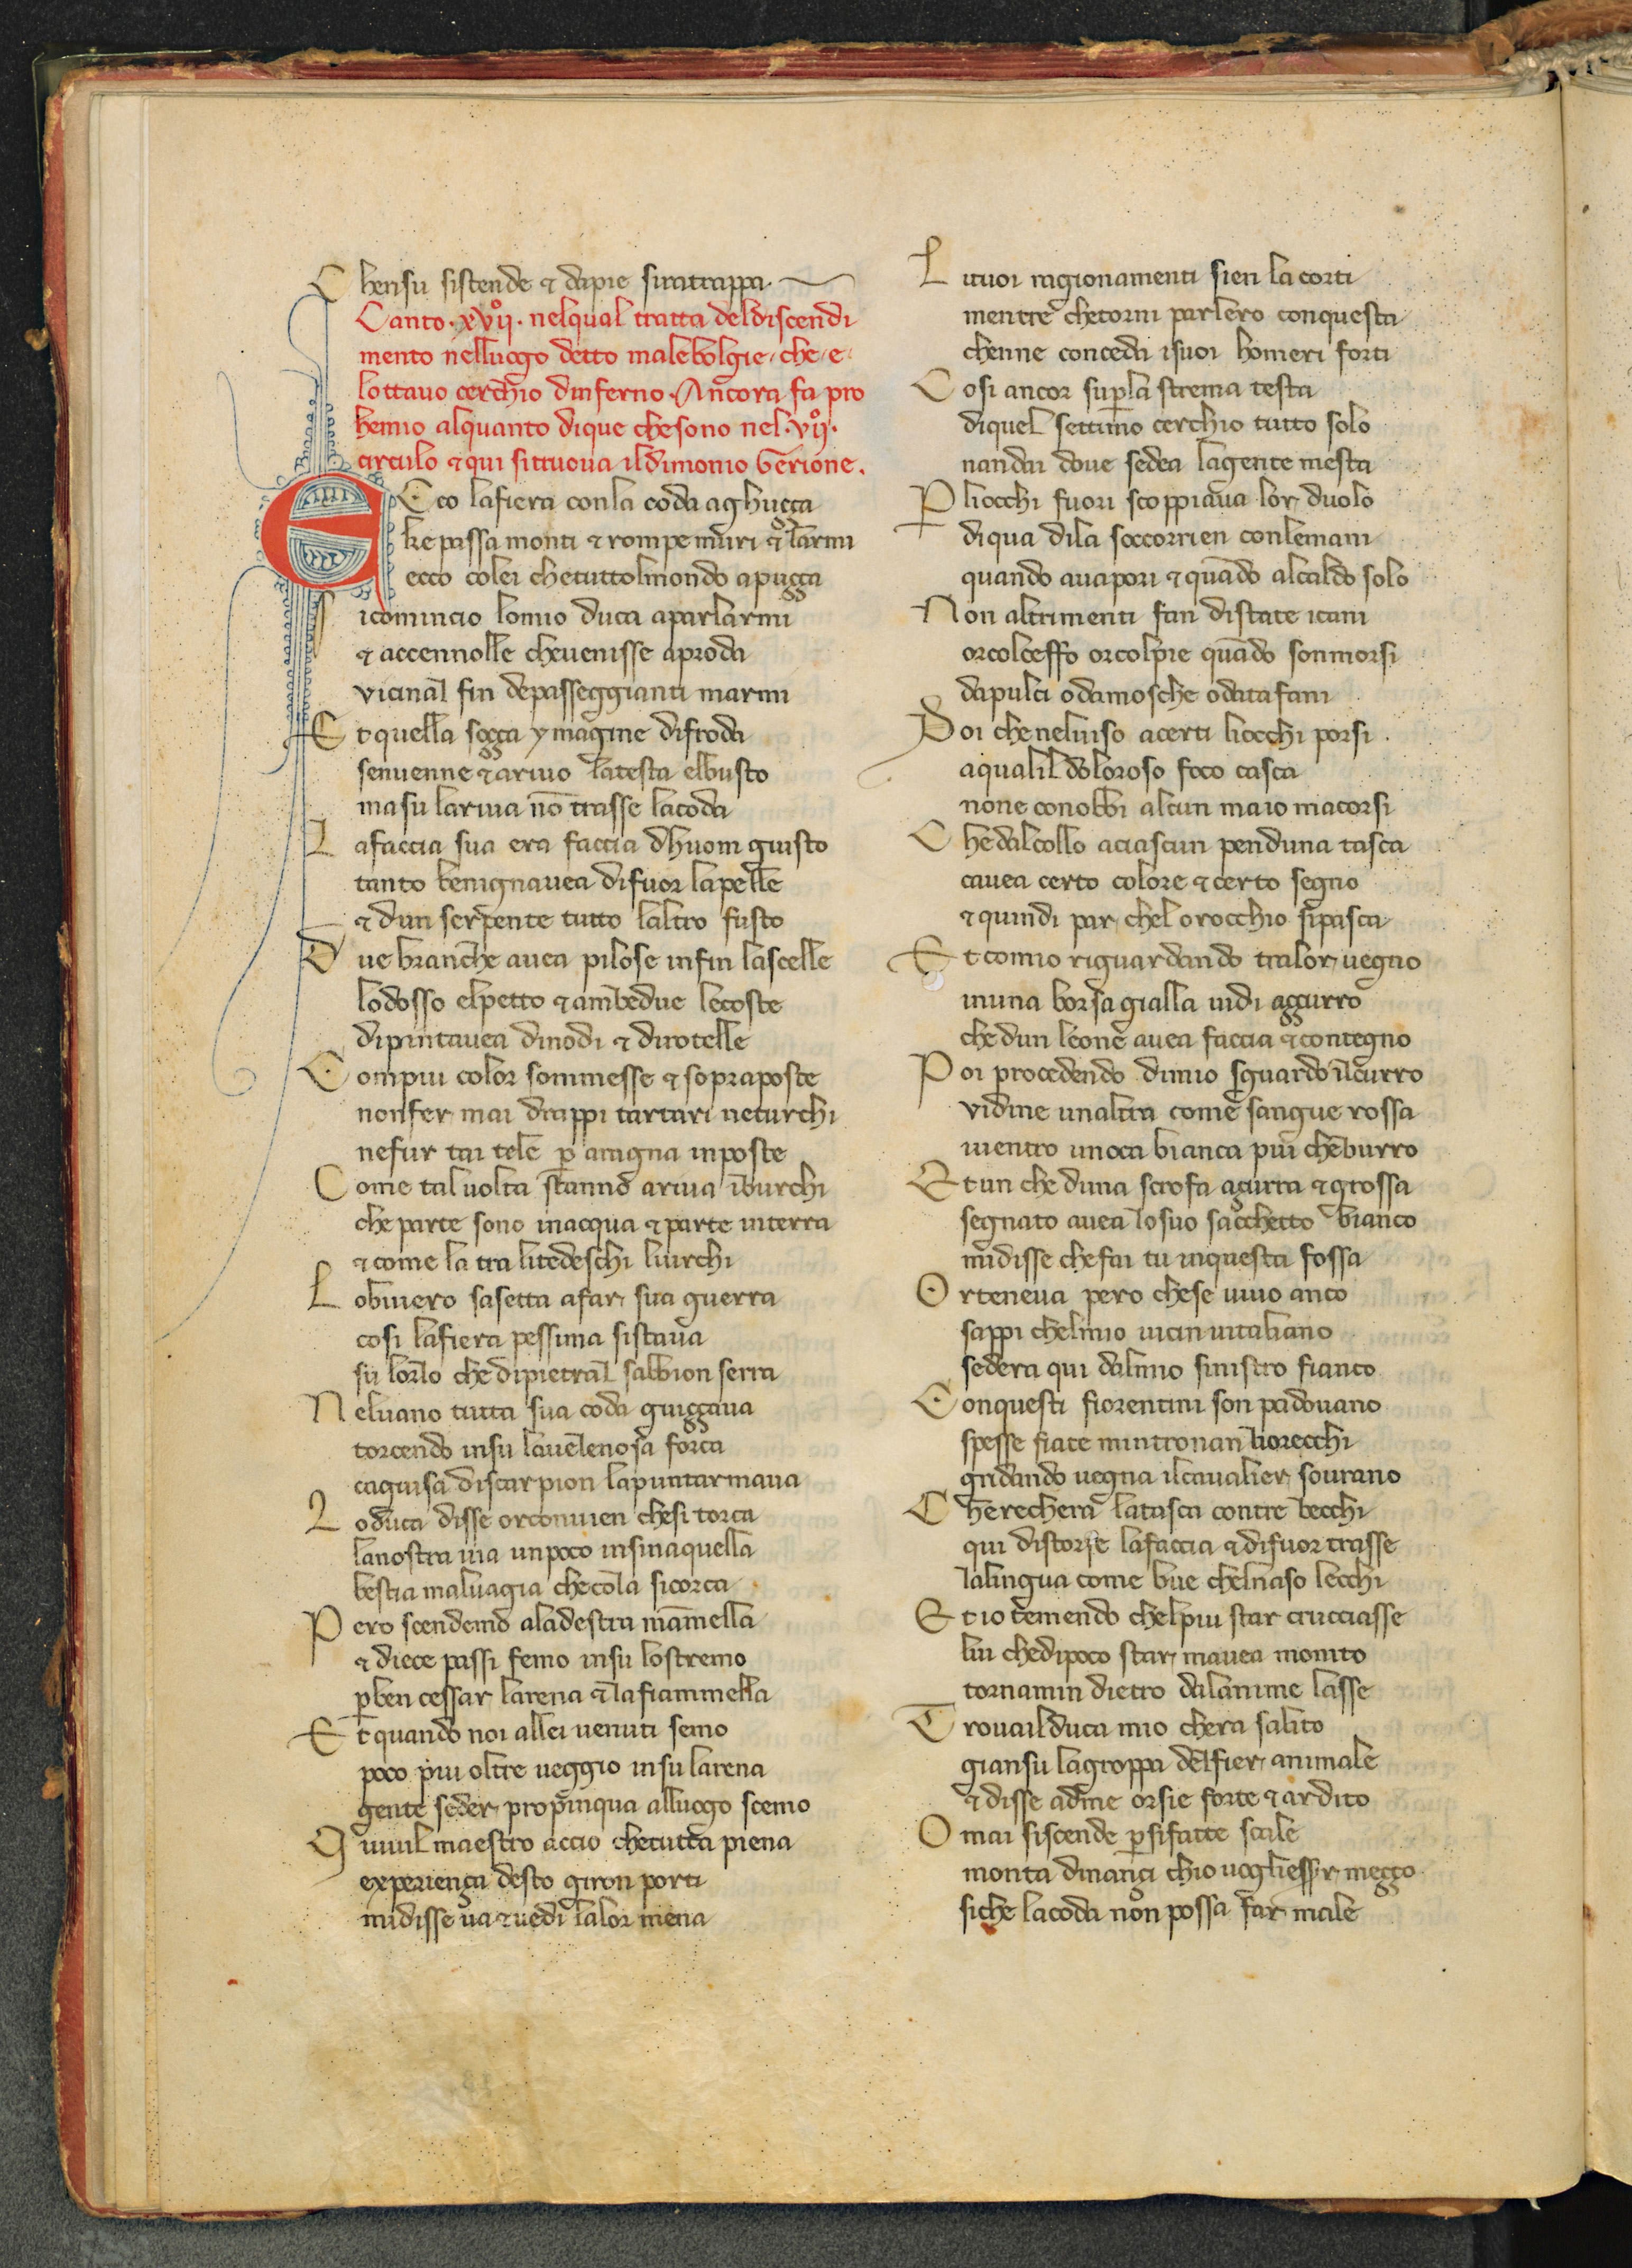 C hensu sistende & dapie sirattrappa
Canto · xvii° · nelqual tratta deldiscendi
mento nelluogo detto malebolgie · che · e ·
lottauo cerchio dinferno · Ancora fa pro
hemio alquanto dique chesono nel · vii° ·
circulo & qui sittruoua ildimonio Gerione .
E Cco lafiera conla coda aghuçça
ke passa monti & rompe muri & larmi
ecco colei chetuttolmondo apuçça
S icomincio lomio duca aparlarmi
& accennolle cheuenisse aproda
vicinal fin depasseggianti marmi
E t quella soçça ymagine difroda
senuenne & arriuo latesta elbusto
ma su lariua nō trasse lacoda
L afaccia sua era faccia dhuom giusto
tanto benignauea difuor lapelle
& dun serpente tutto laltro fusto
D ue branche auea pilose infin lascelle
lodosso elpetto & ambedue lecoste
dipintauea dinodi & dirotelle
C ompiu color sommesse & sopraposte
nonfer mai drappi tartari neturchi
nefur tai tele p aragna inposte
C ome taluolta stanno ariua iburchi
che parte sono inacqua & parte interra
& come la tra litedeschi lurchi
L obiuero sasetta afar sua guerra
cosi lafiera pessima sistaua
su lorlo che dipietral sabbion serra
N eluano tutta sua coda guiççaua
torcendo insu lauelenosa forca
caguisa discarpion lapuntarmaua
L oduca disse orconuien chesi torca
lanostra uia unpoco insinaquella
bestia maluagia checola sicorca
P ero scendemo aladestra mammella
& diece passi femo insu lostremo
pben cessar larena & lafiammella
E t quando noi allei uenuti semo
poco piu oltre ueggio insu larena
gente seder propinqua alluogo scemo
Q uiuil maestro accio chetutta piena
experiença desto giron porti
midisse ua & uedi lalor mena
L ituoi ragionamenti sien la corti
mentre chetorni parlero conquesta
chenne conceda isuoi homeri forti
C osi ancor supla strema testa
diquel settimo cerchio tutto solo
nandai doue sedea lagente mesta
P liocchi fuori scoppiaua lor duolo
diqua dila soccorrien conlemani
quando auapori & quādo alcaldo solo
N on altrimenti fan distate icani
orcolceffo orcolpie quādo sonmorsi
dapulci odamosche odatafani
P oi che neluiso acerti liocchi porsi
aqualil doloroso foco casca
none conobbi alcun maio macorsi
C hedalcollo aciascun penduna tasca
cauea certo colore & certo segno
& quindi par chel orocchio sipasca
E t comio riguardando tralor uegno
inuna borsa gialla uidi açurro
chedun leone auea faccia & contegno
P oi procedendo dimio sguardo ilcurro
vidine unaltra come sangue rossa
mentro unoca bianca piu cheburro
E t un che duna scrofa açurra & grossa
segnato auea losuo sacchetto bianco
midisse chefai tu inquesta fossa
O rteneua pero chese uiuo anco
sappi chelmio uicin uitaliano
sedera qui dalmio sinistro fianco
C onquesti fiorentini son padouano
spesse fiate mintronan liorecchi
gridando uegna ilcaualier sourano
C herechera latasca contre becchi
qui distorse lafaccia & difuor trasse
lalingua come bue chelnaso lecchi
E t io temendo chelpiu star crucciasse
lui chedipoco star mauea monito
tornamin dietro dalanime lasse
T rouailduca mio chera salito
giansu lagroppa delfier animale
& disse adme orsie forte & ardito
O mai siscende psifatte scale
monta dinançi chio uogliesser meçço
siche lacoda non possa far male